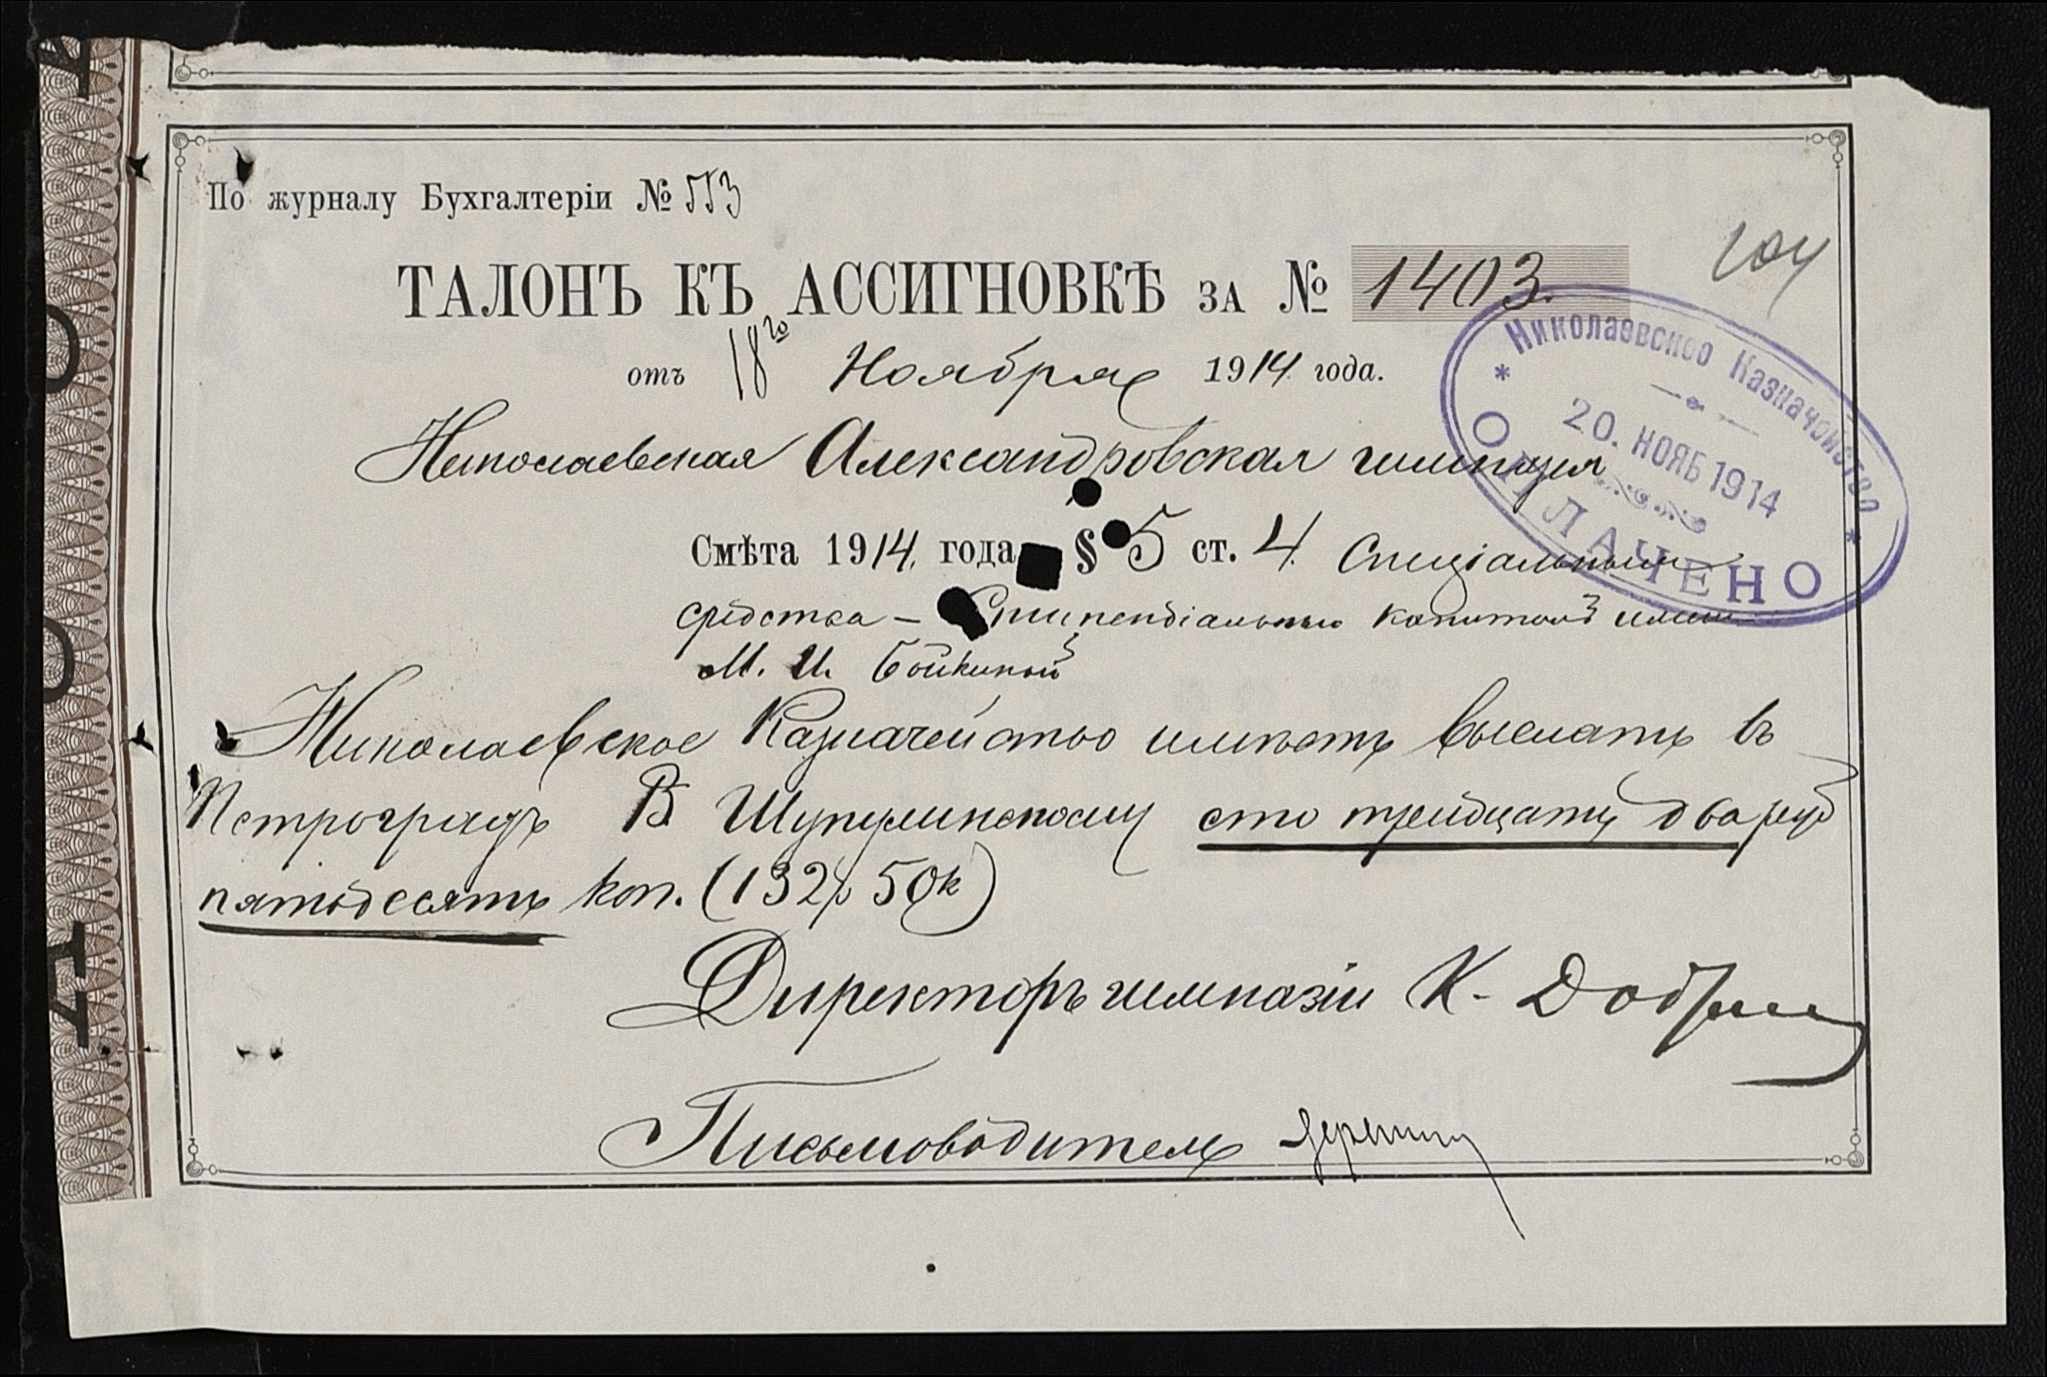 По журналу Бухгалтеріи №
104
ТАЛОНЪ КЪ АССИГНОВКѢ ЗА № 1403.
отъ 18го Ноября 1914 года.
Николаевская Александровская гимназія
Николаевское Казначейство
20. НОЯБ 1914
ОПЛАЧЕНО
Смѣта 1914. года § 5 ст. 4. Спеціальныя
средства – Стипендіальный капиталъ имени
М. И. Бойкиной
Николаевское Казначейство имѣетъ выслать въ
Петроградъ В сто тридцать два руб
пятьдесятъ коп. (132р 50к)
Директоръ гимназіи К.
Письмоводитель